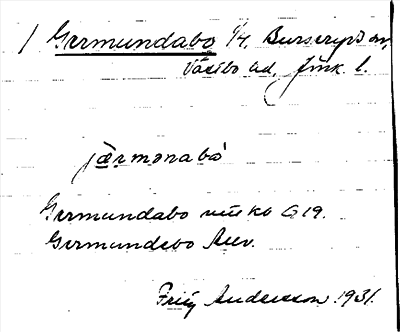 / Germundabo 1/4, Burseryds sn,
Västbo hd, Jönk. l.
jærmonabò
Germundabo vu ko G 19.
Germundebo Aev.
Frity Andersson 1931.